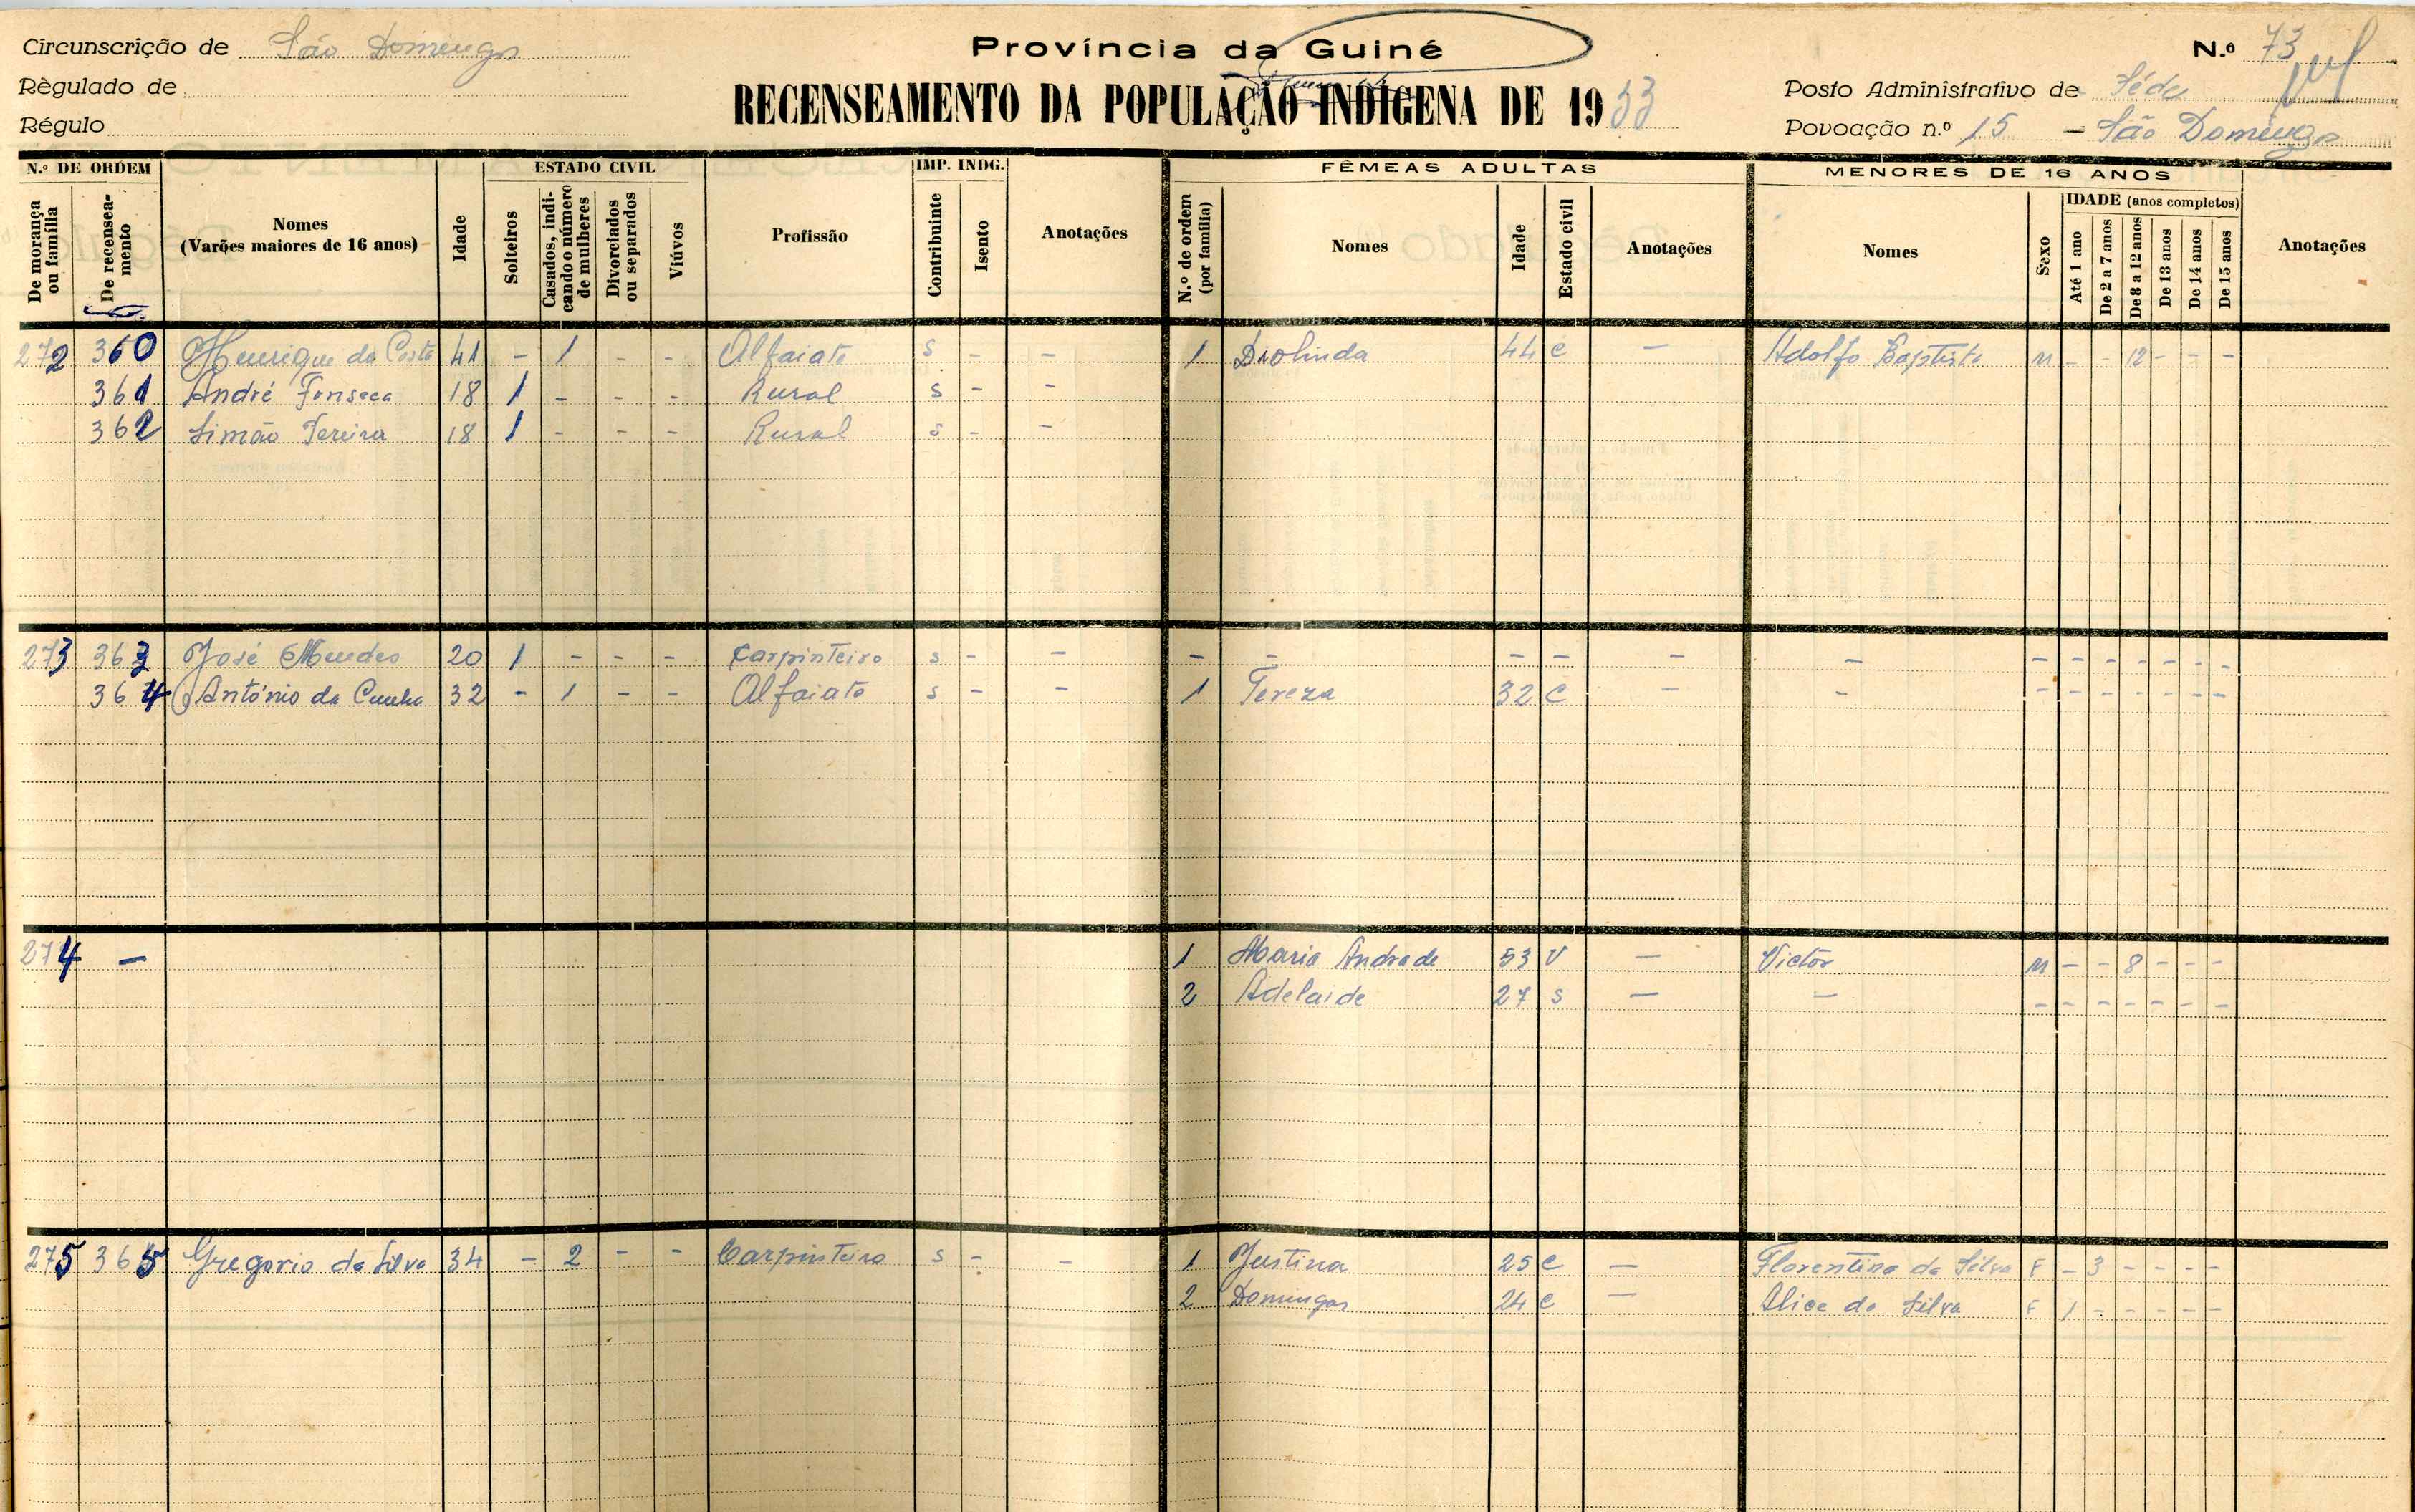 Circunscrição de São Domingos
Província da Guiné
N.º 73
Règulado de
RECENSEAMENTO DA POPULAÇÃO INDÍGENA DE 1953
Posto Administrativo de Séde
Régulo
Povoação n.º 15 — São Domingos
N.º DE ORDEM
De morança ou família
De recenseamento
Nomes
(Varões maiores de 16 anos)
Idade
ESTADO CIVIL
Solteiros
Casados, indicando o número de mulheres
Divorciados ou separados
Viúvos
Profissão
IMP. INDG.
Contribuinte
Isento
Anotações
FÊMEAS ADULTAS
N.º de ordem (por família)
Nomes
Idade
Estado civil
Anotações
MENORES DE 16 ANOS
Nomes
Sexo
IDADE (anos completos)
Até 1 ano
De 2 a 7 anos
De 8 a 12 anos
De 13 anos
De 14 anos
De 15 anos
Anotações
272 360 Henrique da Costa 41 - 1 - - Alfaiate s - - 1 Diolinda 44 c - Adolfo Baptista M - - 12 - - -
361 André Fonseca 18 1 - - - Rural s - -
362 Simão Pereira 18 1 - - - Rural s - -
273 363 José Mendes 20 1 - - - Carpinteiro s - - - - - - - - - - - - - - -
364 António da Cunha 32 - 1 - - Alfaiate s - - 1 Tereza 32 C - - - - - - - - -
274 - 1 Maria Andrade 53 V - Victor M - - 8 - - -
2 Adelaide 27 s - - - - - - - - -
275 365 Gregorio da Silva 34 - 2 - - Carpinteiro s - - 1 Justina 25 c - Florentina da Silva F - 3 - - - -
2 Domingas 24 c - Alice da Silva F 1 - - - - -